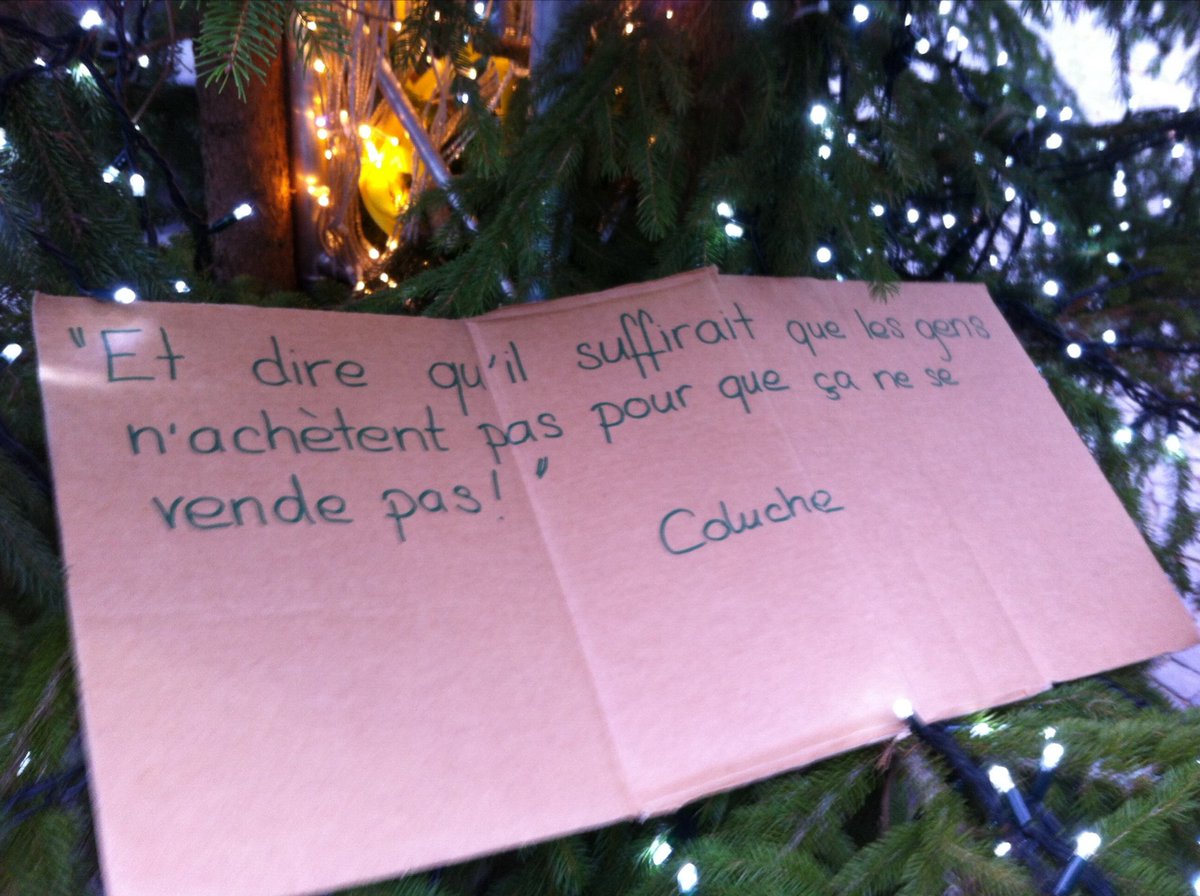 "Et dire qu'il suffirait que les gens
n'achètent pas pour que ça ne se
vende pas! "
Coluche